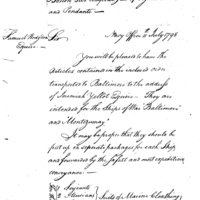 and Pendants
Samuel Hodgdon Esquire
Navy Office 6 July 1798
Sir
You will be pleased to have the
Articles contained in the inclosed
transported to Baltimore to the address
of Jeremiah Yellott Esquire. They are
intended for the Ships of War "Baltimore"
and "Montezuma"
It may be proper that they should be
put up in separate packages for each Ship
and forwarded by the safest and most expeditious
conveyance
Suits of Marine Cloathing